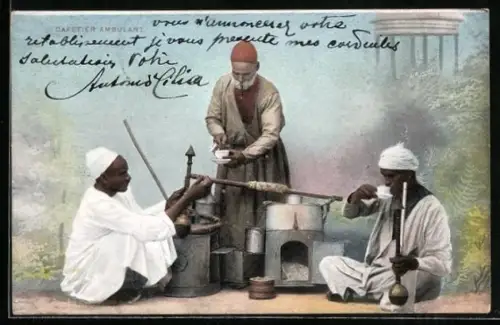 CAFETIER AMBULANT
vous m'annoncerez votre
retablisement je vous presente mes cordiales
salutations Votre
Antonio